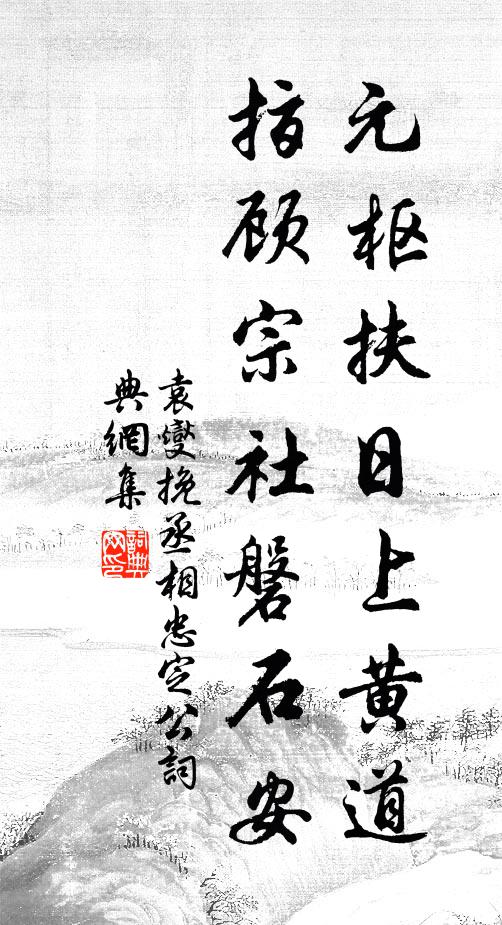 元枢扶日上黄道
指顾宗社磐石安
袁燮挽丞相忠定公詞
典網集
詞典
网印